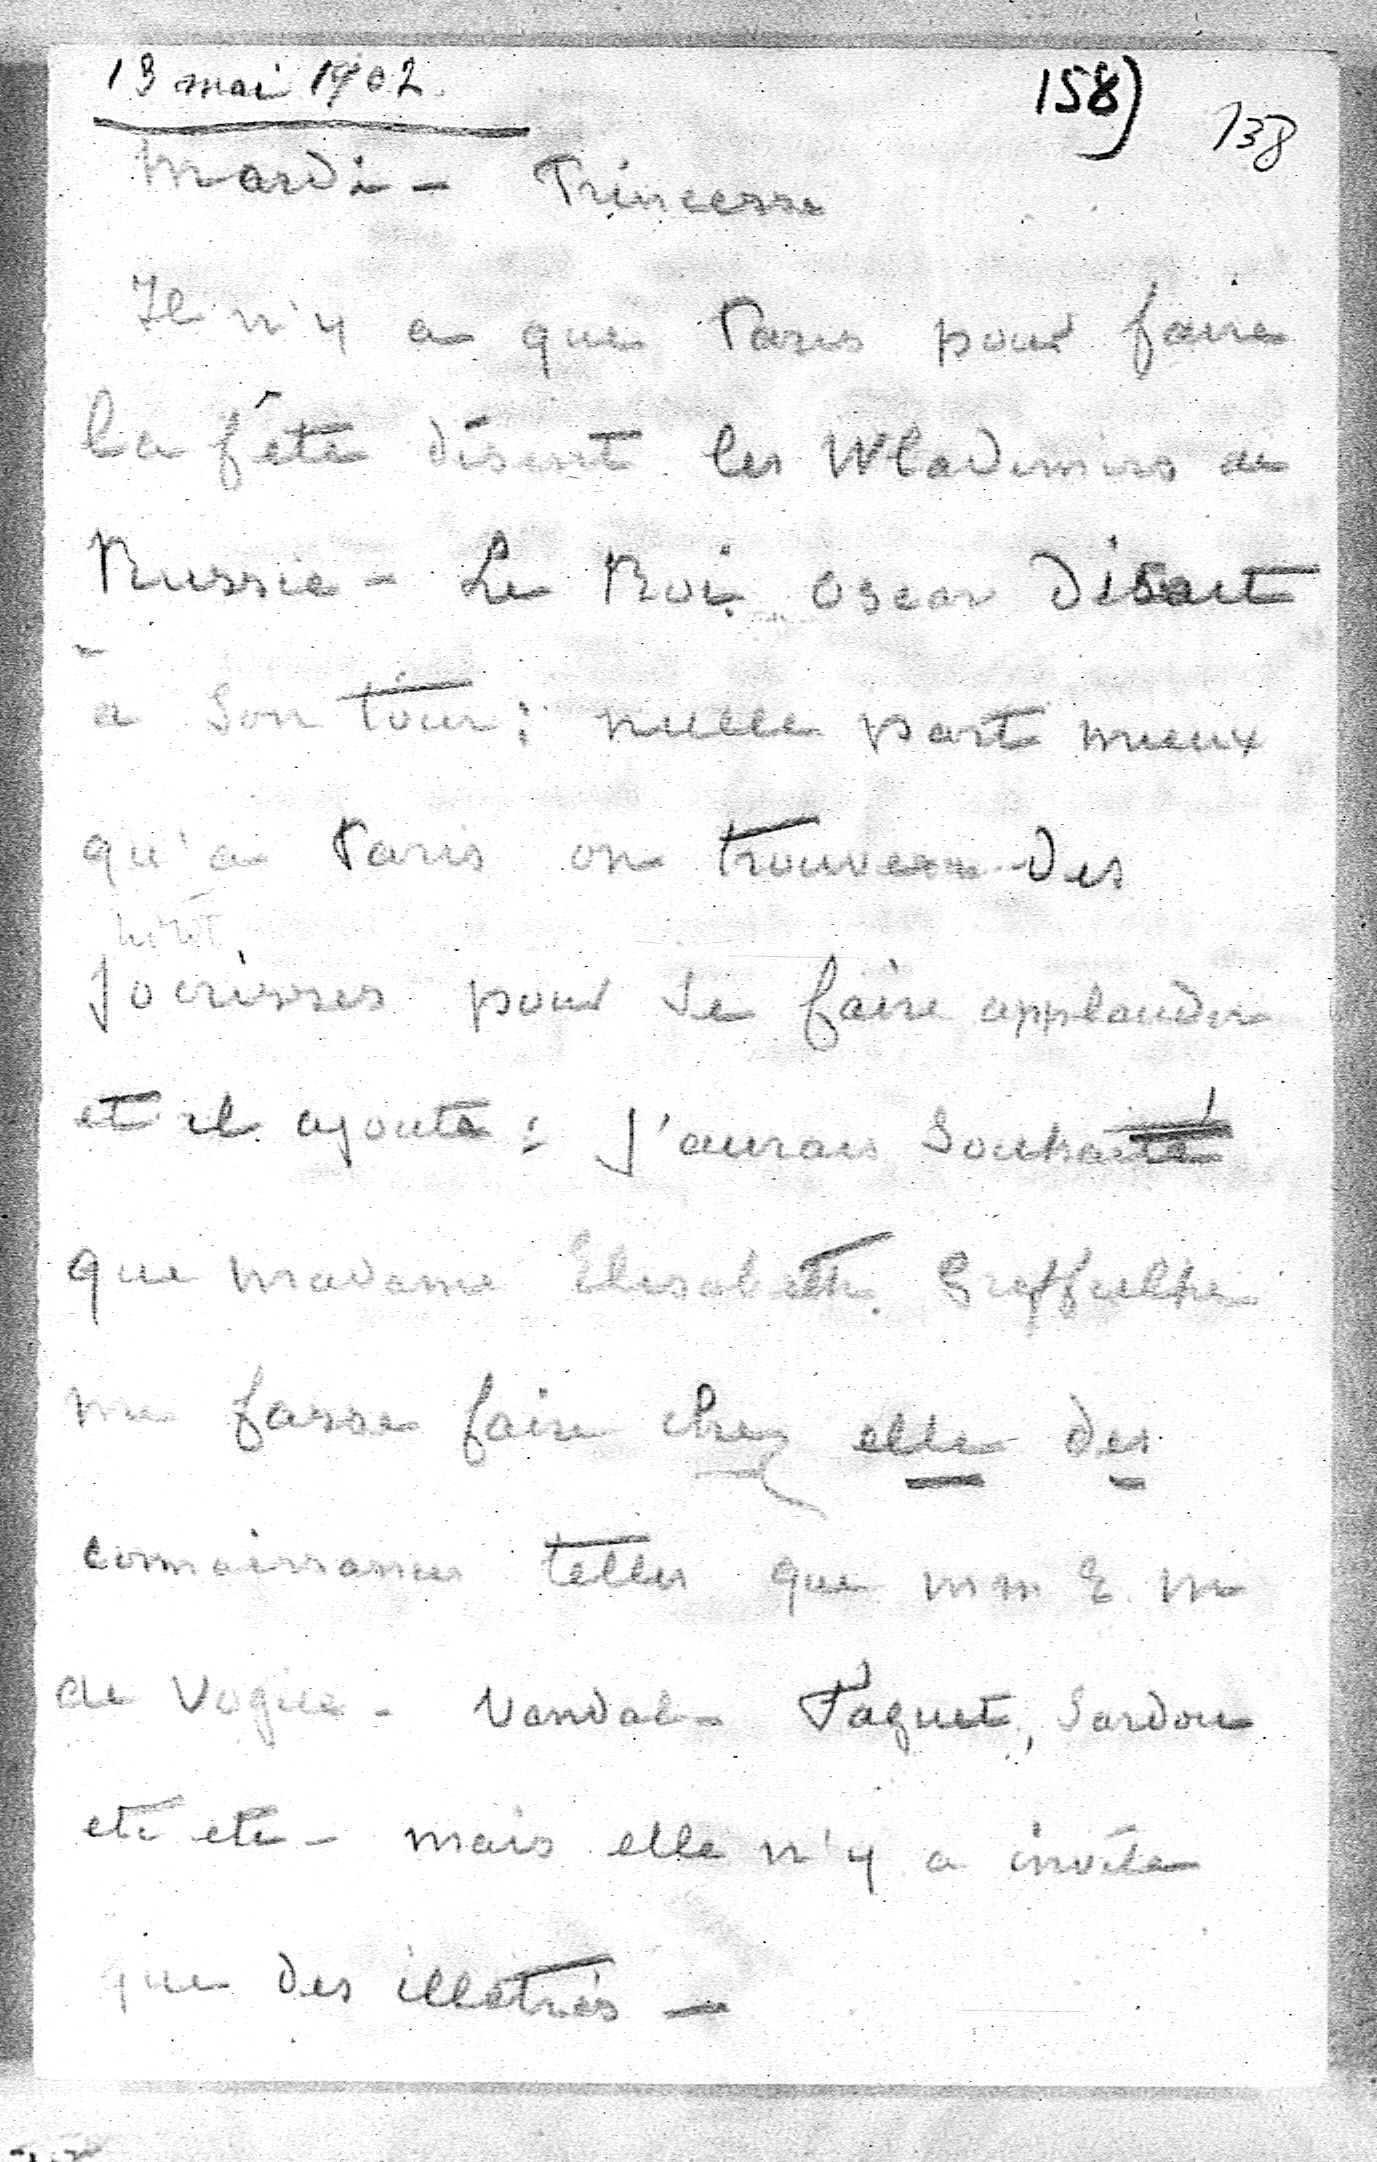 13 mai 1902.
158)
138
Mardi - Princesse
Il n'y a que Paris pour faire
la fête disent les Wladimirs de
Russie - Le Roi Oscar disait
à son tour : nulle part mieux
qu'a Paris on trouve des
Jocrisses pour se faire applaudir
et il ajoute : J'aurais souhaité
que madame Elisabeth Greffulhe
me fasse faire chez elle des
connaissances telles que mm E. m
de Vogüe - Vandal - Faguet, Sardou
etc etc - mais elle n'y a invité
que des illétrés -